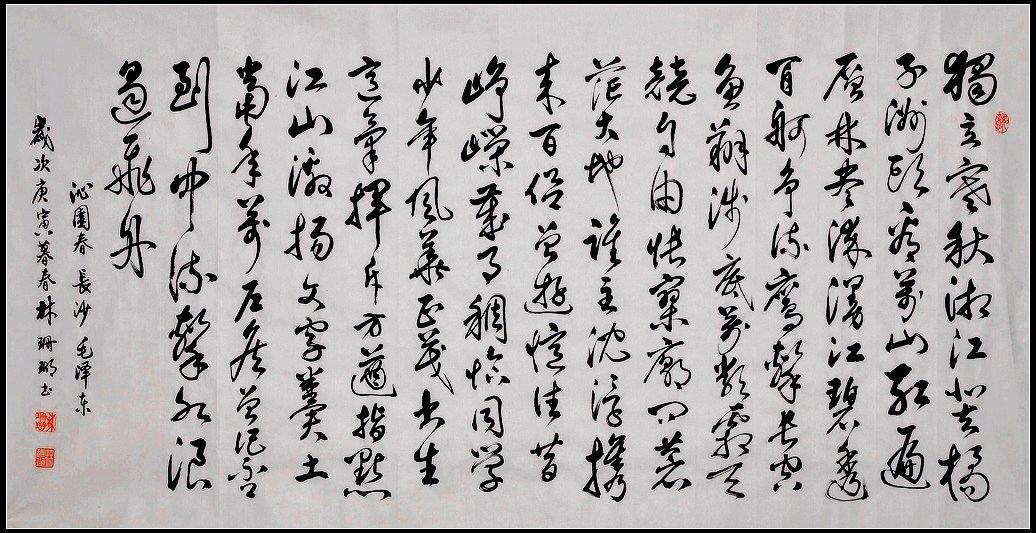 獨立寒秋湘江北去橘
子洲頭看萬山紅遍
層林盡染漫江碧透
百舸爭流鷹擊長空
魚翔淺底萬類霜天
競自由悵寥廓問蒼
茫大地誰主沈浮攜
來百侣曾遊憶往昔
崢嶸歲月稠恰同学
少年風華正茂书生
意氣揮斥方遒指點
江山激揚文字糞土
當年萬户侯曾記否
到中流擊水浪
遏飛舟
沁園春 長沙 毛澤東
歲次庚寅暮春 林珊瑚书